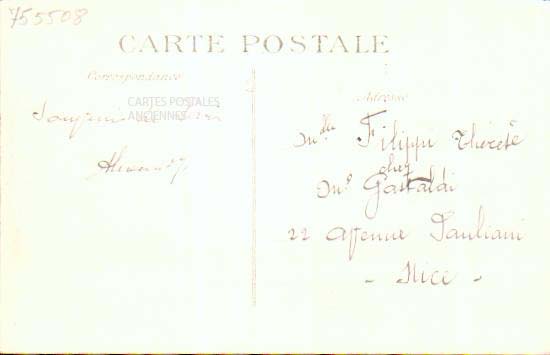 755508
CARTE POSTALE
Correspondance
Adresse
CARTES POSTALES
ANCIENNES
Mlle Filippi Thérèse
chez
Mr Gastaldi
22 Avenue Pauliani
- Nice -